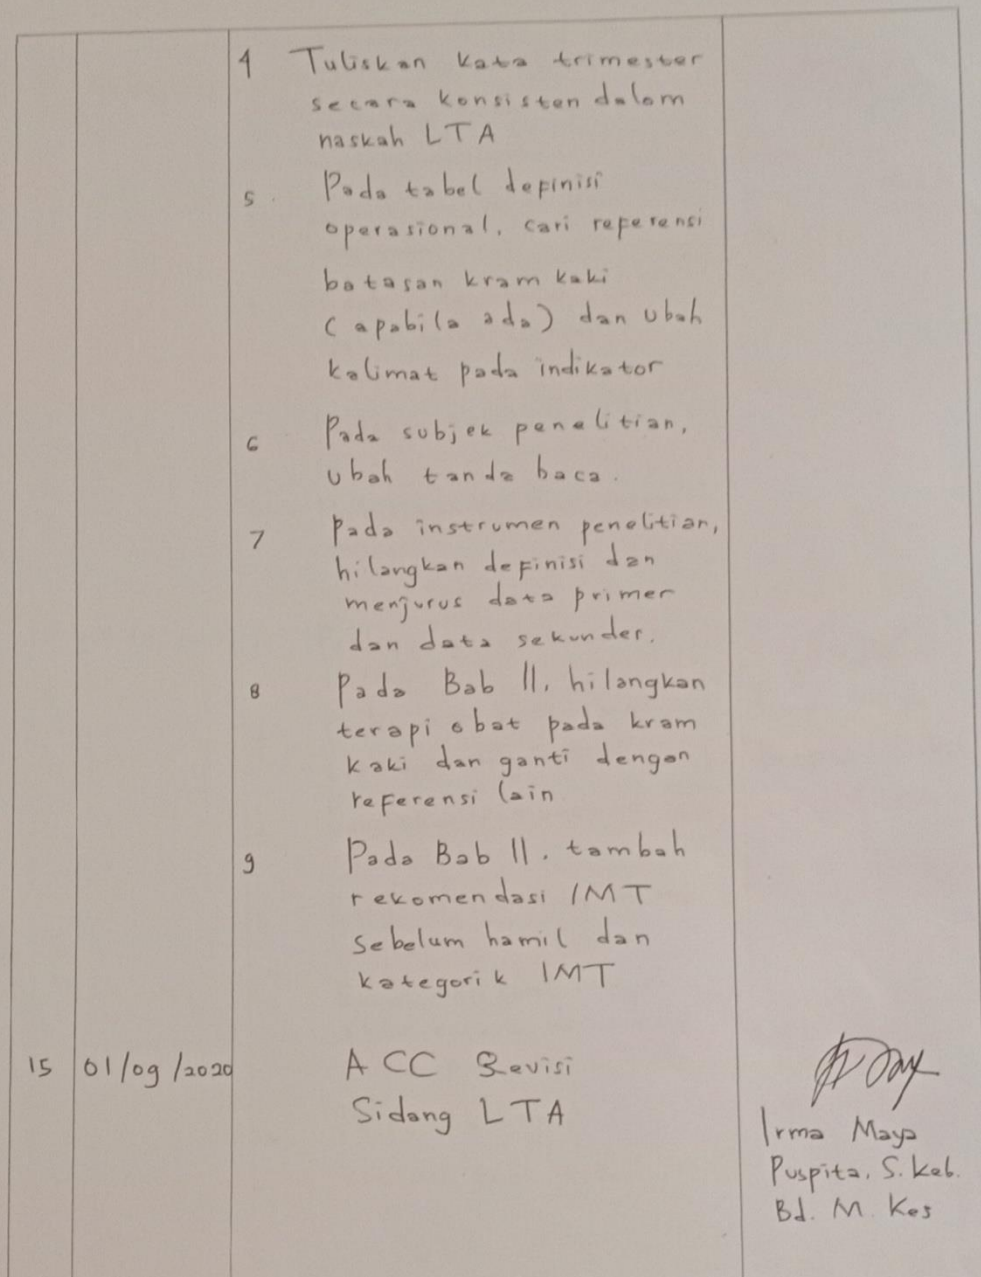 4 Tuliskan kata trimester
secara konsisten dalam
naskah LTA
5. Pada tabel definisi
operasional, cari referensi
batasan kram kaki
(apabila ada) dan ubah
kalimat pada indikator
6 Pada subjek penelitian,
ubah tanda baca.
7 Pada instrumen penelitian,
hilangkan definisi dan
menjurus data primer
dan data sekunder.
8 Pada Bab II, hilangkan
terapi obat pada kram
kaki dan ganti dengan
referensi lain
9 Pada Bab II, tambah
rekomendasi IMT
sebelum hamil dan
kategorik IMT
15 01/09/2020 ACC Revisi
Sidang LTA
Irma Maya
Puspita, S. Keb.
Bd. M. Kes